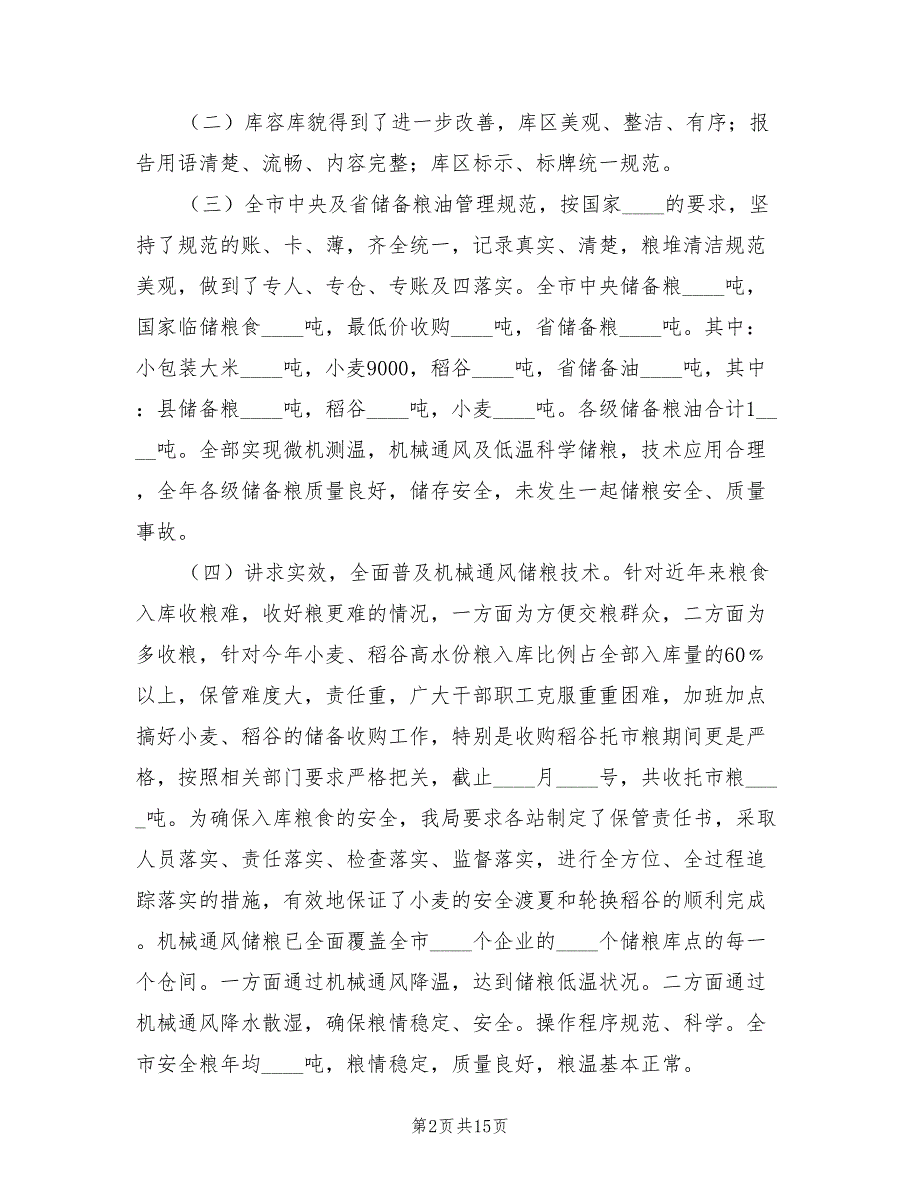 （二）库容库貌得到了进一步改善，库区美观、整洁、有序；报
告用语清楚、流畅、内容完整；库区标示、标牌统一规范。
（三）全市中央及省储备粮油管理规范，按国家____的要求，坚
持了规范的账、卡、薄，齐全统一，记录真实、清楚，粮堆清洁规范
美观，做到了专人、专仓、专账及四落实。全市中央储备粮____吨，
国家临储粮食____吨，最低价收购____吨，省储备粮____吨。其中：
小包装大米____吨，小麦9000，稻谷____吨，省储备油____吨，其中
：县储备粮____吨，稻谷____吨，小麦____吨。各级储备粮油合计1__
__吨。全部实现微机测温，机械通风及低温科学储粮，技术应用合理
，全年各级储备粮质量良好，储存安全，未发生一起储粮安全、质量
事故。
（四）讲求实效，全面普及机械通风储粮技术。针对近年来粮食
入库收粮难，收好粮更难的情况，一方面为方便交粮群众，二方面为
多收粮，针对今年小麦、稻谷高水份粮入库比例占全部入库量的60％
以上，保管难度大，责任重，广大干部职工克服重重困难，加班加点
搞好小麦、稻谷的储备收购工作，特别是收购稻谷托市粮期间更是严
格，按照相关部门要求严格把关，截止____月____号，共收托市粮___
_吨。为确保入库粮食的安全，我局要求各站制定了保管责任书，采取
人员落实、责任落实、检查落实、监督落实，进行全方位、全过程追
踪落实的措施，有效地保证了小麦的安全渡夏和轮换稻谷的顺利完成
。机械通风储粮已全面覆盖全市____个企业的____个储粮库点的每一
个仓间。一方面通过机械通风降温，达到储粮低温状况。二方面通过
机械通风降水散湿，确保粮情稳定、安全。操作程序规范、科学。全
市安全粮年均____吨，粮情稳定，质量良好，粮温基本正常。
第2页共15页